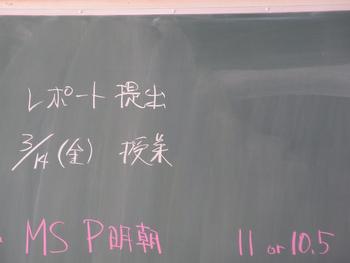 レポート 提出
3/14(金) 授業
MS P明朝 11 or 10.5